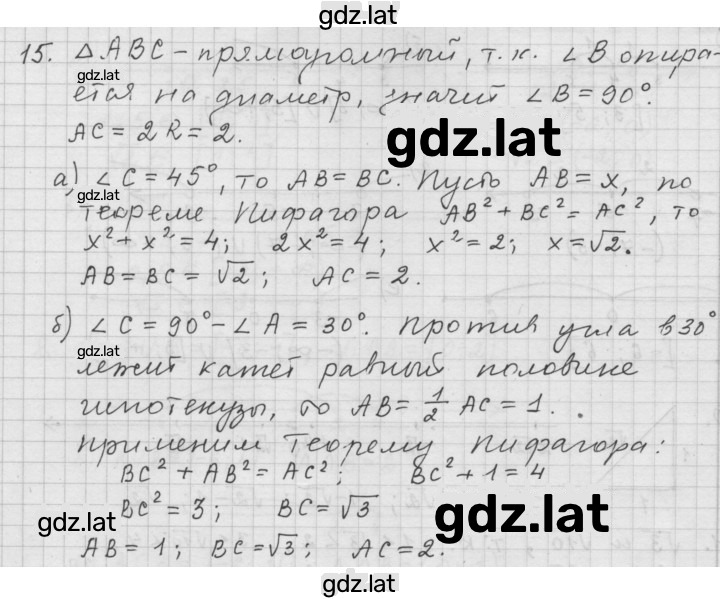 gdz.lat
15. △ABC – прямоугольный, т.к. ∠B опира-
gdz.lat
ется на диаметр, значит ∠B = 90°.
AC = 2R = 2.
gdz.lat
а) ∠C = 45°, то AB = BC. Пусть AB = x, по
gdz.lat
теореме Пифагора AB² + BC² = AC², то
x² + x² = 4; 2x² = 4; x² = 2; x = √2.
AB = BC = √2; AC = 2.
б) ∠C = 90° – ∠A = 30°. Против угла в 30°
gdz.lat
лежит катет равный половине
гипотенузы, то AB = 1/2 AC = 1.
Применим теорему Пифагора:
BC² + AB² = AC²; BC² + 1 = 4
BC² = 3; BC = √3
gdz.lat
gdz.lat
AB = 1; BC = √3; AC = 2.
gdz.lat